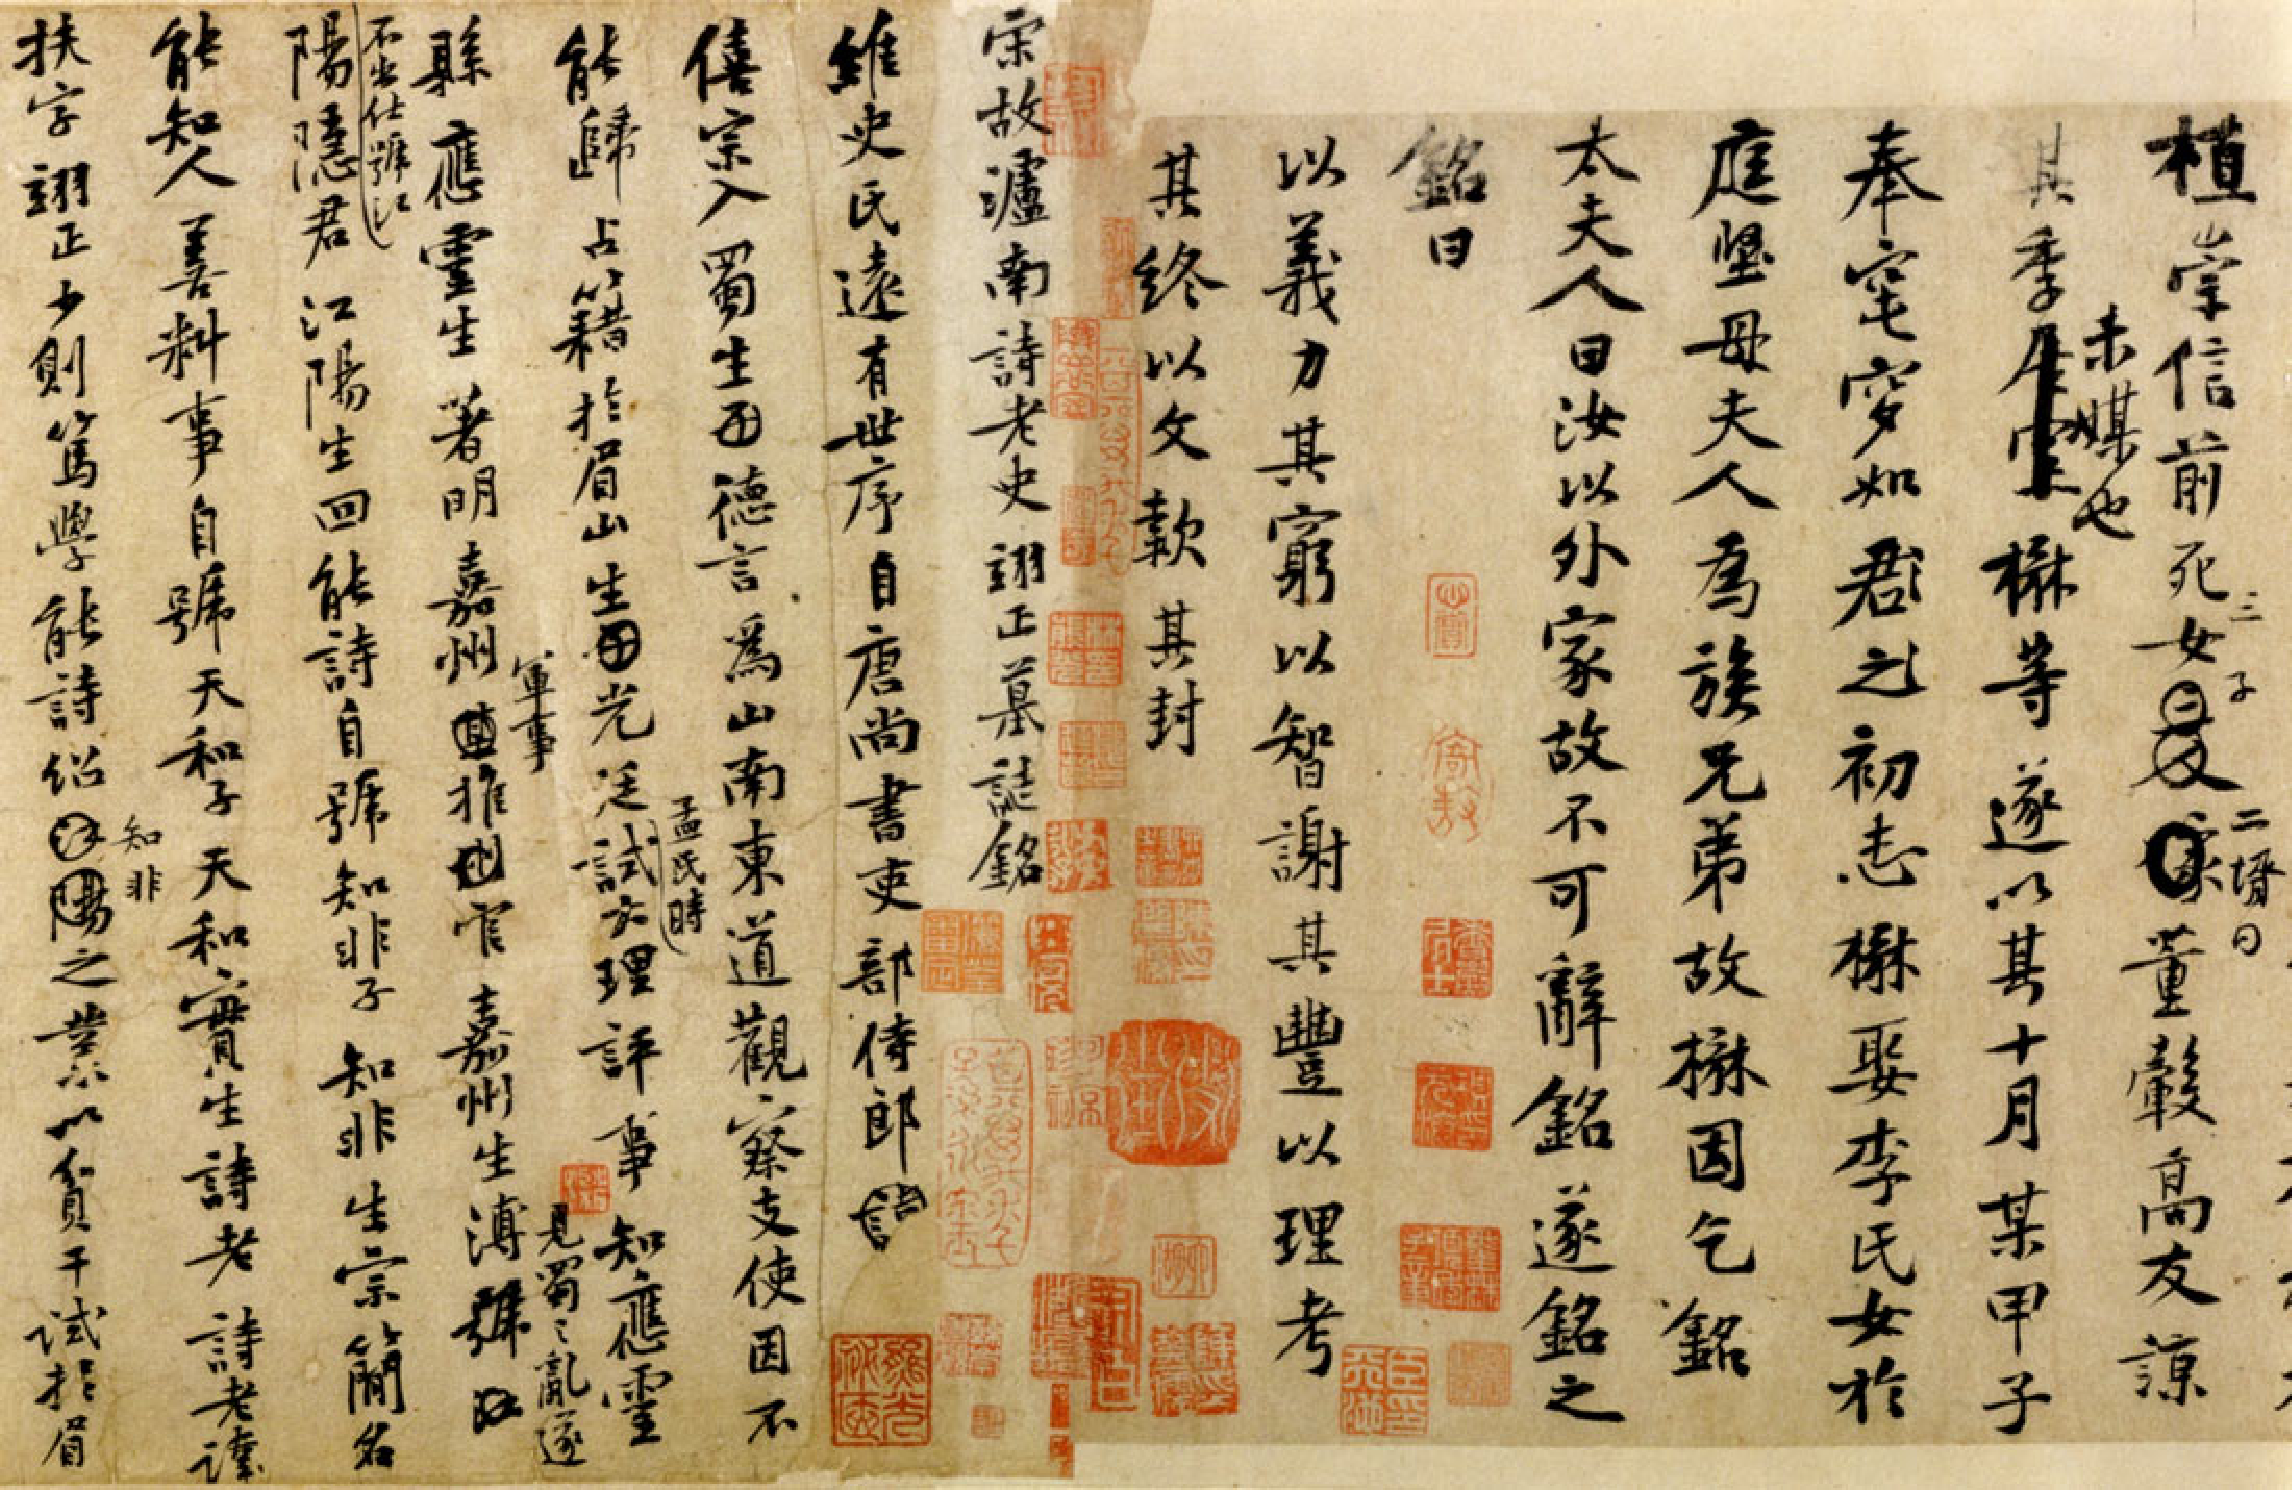 植崇信前死女三子
二壻曰董轂高友諒
其季未媒也楙等遂以其十月某甲子
奉窀穸如君之初志楙娶李氏女於
庭堅母夫人為族兄弟故楙因乞銘
太夫人曰汝以外家故不可辭銘遂銘之
銘曰
以義力其窮以智謝其豐以理考
其終以文款其封
宋故瀘南詩老史翊正墓誌銘
維史氏遠有世序自唐尚書吏部侍郎
僖宗入蜀生德言為山南東道觀察支使因不
能歸占籍於眉山生光廷試大理評事知應靈
孟氏時
見蜀々亂遂
縣應靈生著明嘉州軍事推官嘉州生溥號
不出仕號江
陽隱君江陽生回能詩自號知非子知非生宗簡名
能知人善料事自號天和子天和實生詩老詩老諱
扶字翊正少則篤學能詩紹知非之業以貧干試於眉